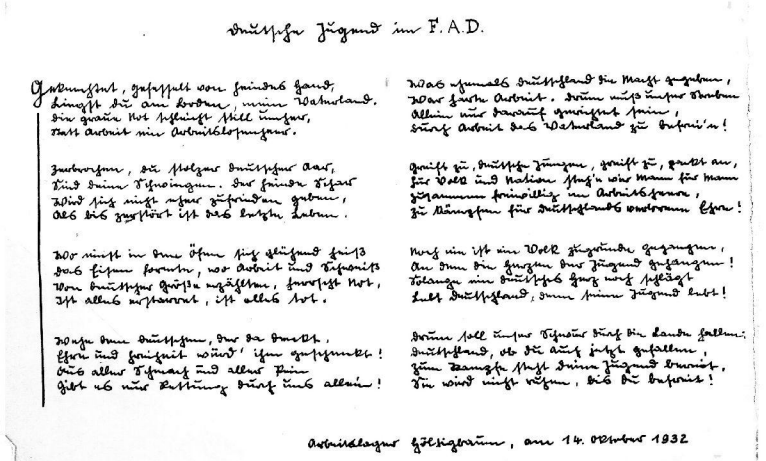 Deutsche Jugend im F.A.D.
Geknechtet, gefesselt von Feindes Hand,
Liegst du am Boden, mein Vaterland.
Die graue Not schleicht still umher,
Statt Arbeit ein Arbeitslosenheer.
Zerbrochen, du stolzer deutscher Aar,
Sind deine Schwingen. Der Feinde Schar
Wird sich nicht eher zufrieden geben,
Als bis zerstört ist das letzte Leben.
Wo einst in den Öfen sich glühend heiß
Das Eisen formte, wo Arbeit und Schweiß
Von deutscher Größe erzählten, herrscht Not,
Ist alles erstarret, ist alles tot.
Wehe dem Deutschen, der da denkt,
Ehre und Freiheit würd' ihm geschenkt!
Aus aller Schmach und aller Pein
Gibt es nur Rettung durch uns allein!
Was ehemals Deutschland die Macht gegeben,
War harte Arbeit. Drum muß unser Streben
Allein nur darauf gerichtet sein,
Durch Arbeit das Vaterland zu befrei'n!
Greift zu, deutsche Jungen, greift zu, packt an,
Für Volk und Nation steh'n wir Mann für Mann
Zusammen freiwillig im Arbeitsheere,
Zu kämpfen für Deutschlands verlorene Ehre!
Noch nie ist ein Volk zugrunde gegangen,
An dem die Herzen der Jugend gehangen!
Solange ein deutsches Herz noch schlägt
Lebt Deutschland, denn seine Jugend lebt!
Drum soll unser Schwur durch die Lande hallen:
Deutschland, ob du auch jetzt gefallen,
Zum Kampfe steht deine Jugend bereit,
Sie wird nicht ruhen, bis du befreit!
Arbeitslager Höltigbaum, am 14. Oktober 1932